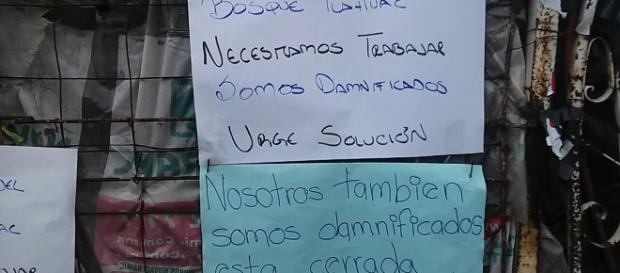 BOSQUE TLÁHUAC
NECESITAMOS TRABAJAR
SOMOS DAMNIFICADOS
URGE SOLUCIÓN
Nosotros tambien
somos damnificados
esta cerrada
DEL
AC